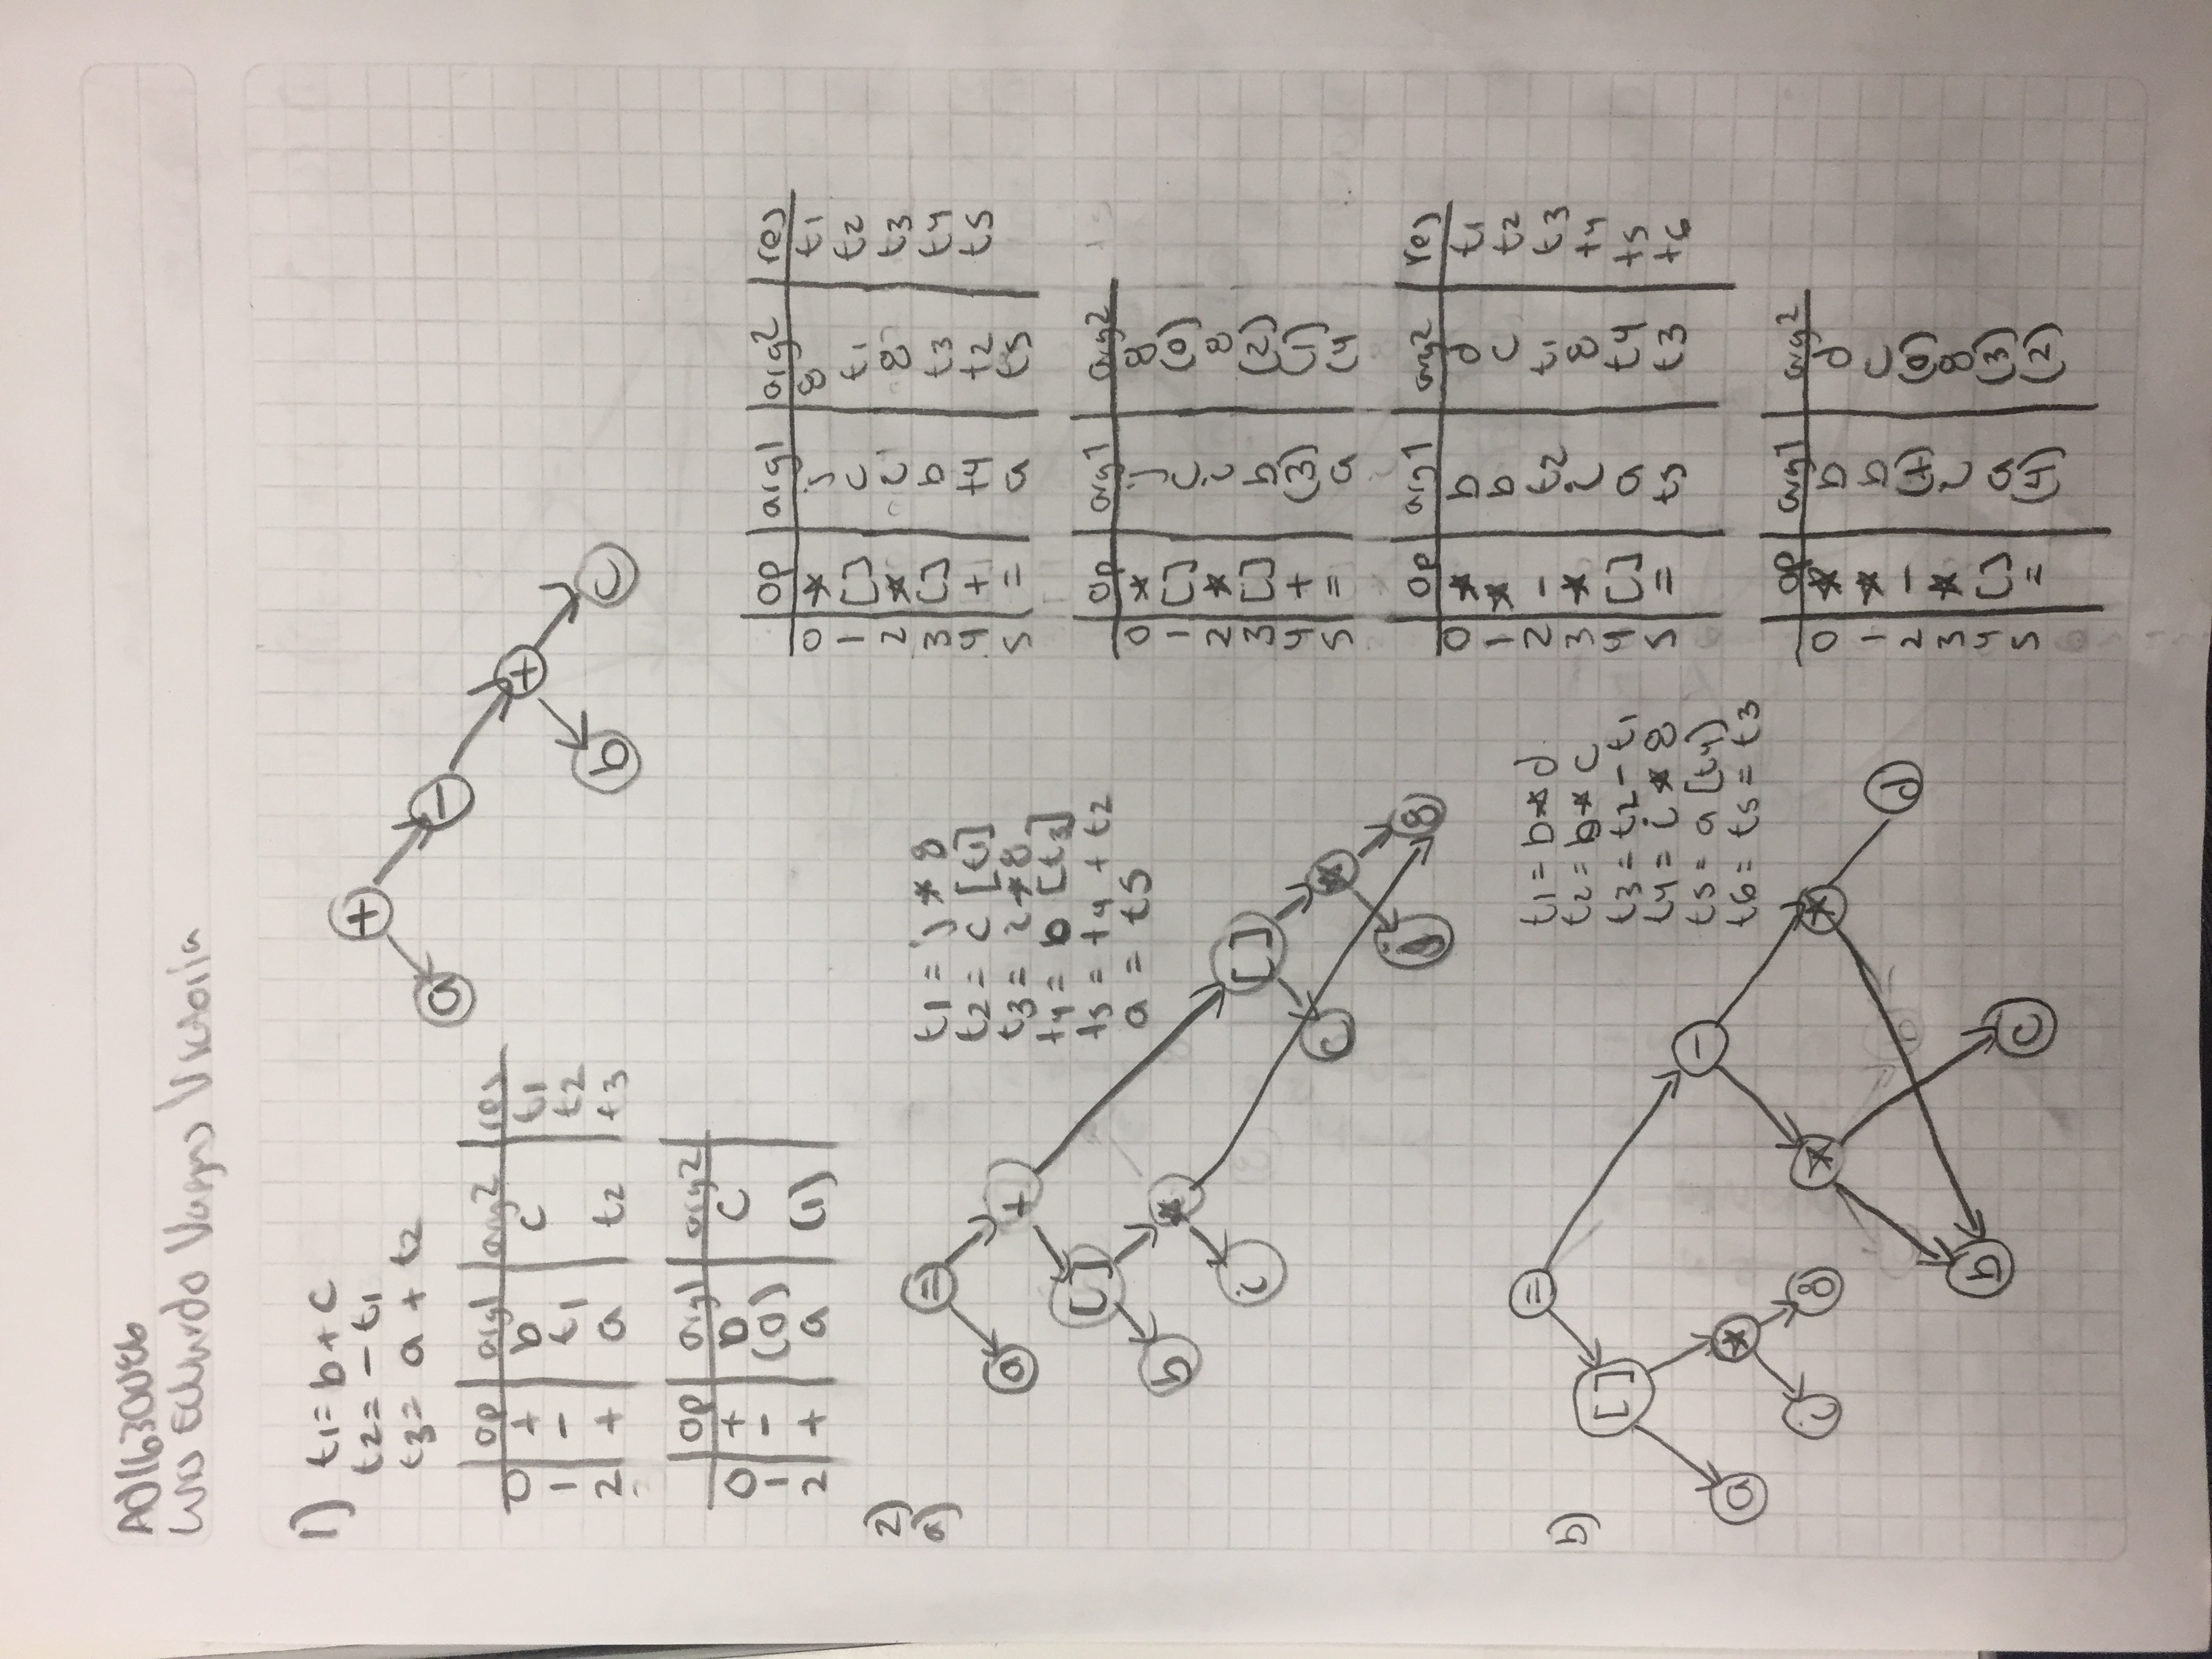 Luis Eduardo Vargas Victoria
1) t1= b + c
t2= - t1
t3= a + t2
+
a
-
+
b c
op arg1 arg2 res
0 + b c t1
1 - t1 t2
2 + a t2 t3
op arg1 arg2
0 + b c
1 - (0)
2 + a (1)
2)
a)
=
a +
[]
b *
i []
c *
j 8
t1 = j * 8
t2 = c [t1]
t3 = i * 8
t4 = b [t3]
t5 = t4 + t2
a = t5
op arg1 arg2 res
0 * j 8 t1
1 [] c t1 t2
2 * i 8 t3
3 [] b t3 t4
4 + t4 t2 t5
5 = a t5
op arg1 arg2
0 * j 8
1 [] c (0)
2 * i 8
3 [] b (2)
4 + (3) (1)
5 = a (4)
b)
=
[] -
a * * *
i 8 d
b c
t1 = b * d
t2 = b * c
t3 = t2 - t1
t4 = i * 8
t5 = a [t4]
t6 = t5 = t3
op arg1 arg2 res
0 * b d t1
1 * b c t2
2 - t2 t1 t3
3 * i 8 t4
4 [] a t4 t5
5 = t5 t3 t6
op arg1 arg2
0 * b d
1 * b c
2 - (1) (0)
3 * i 8
4 [] a (3)
5 = (4) (2)